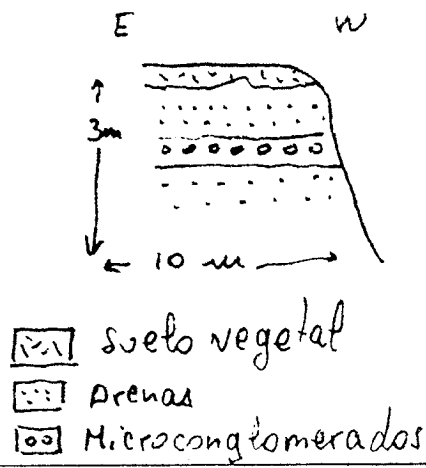 E W
3m
10 m
suelo vegetal
Arenas
Microconglomerados